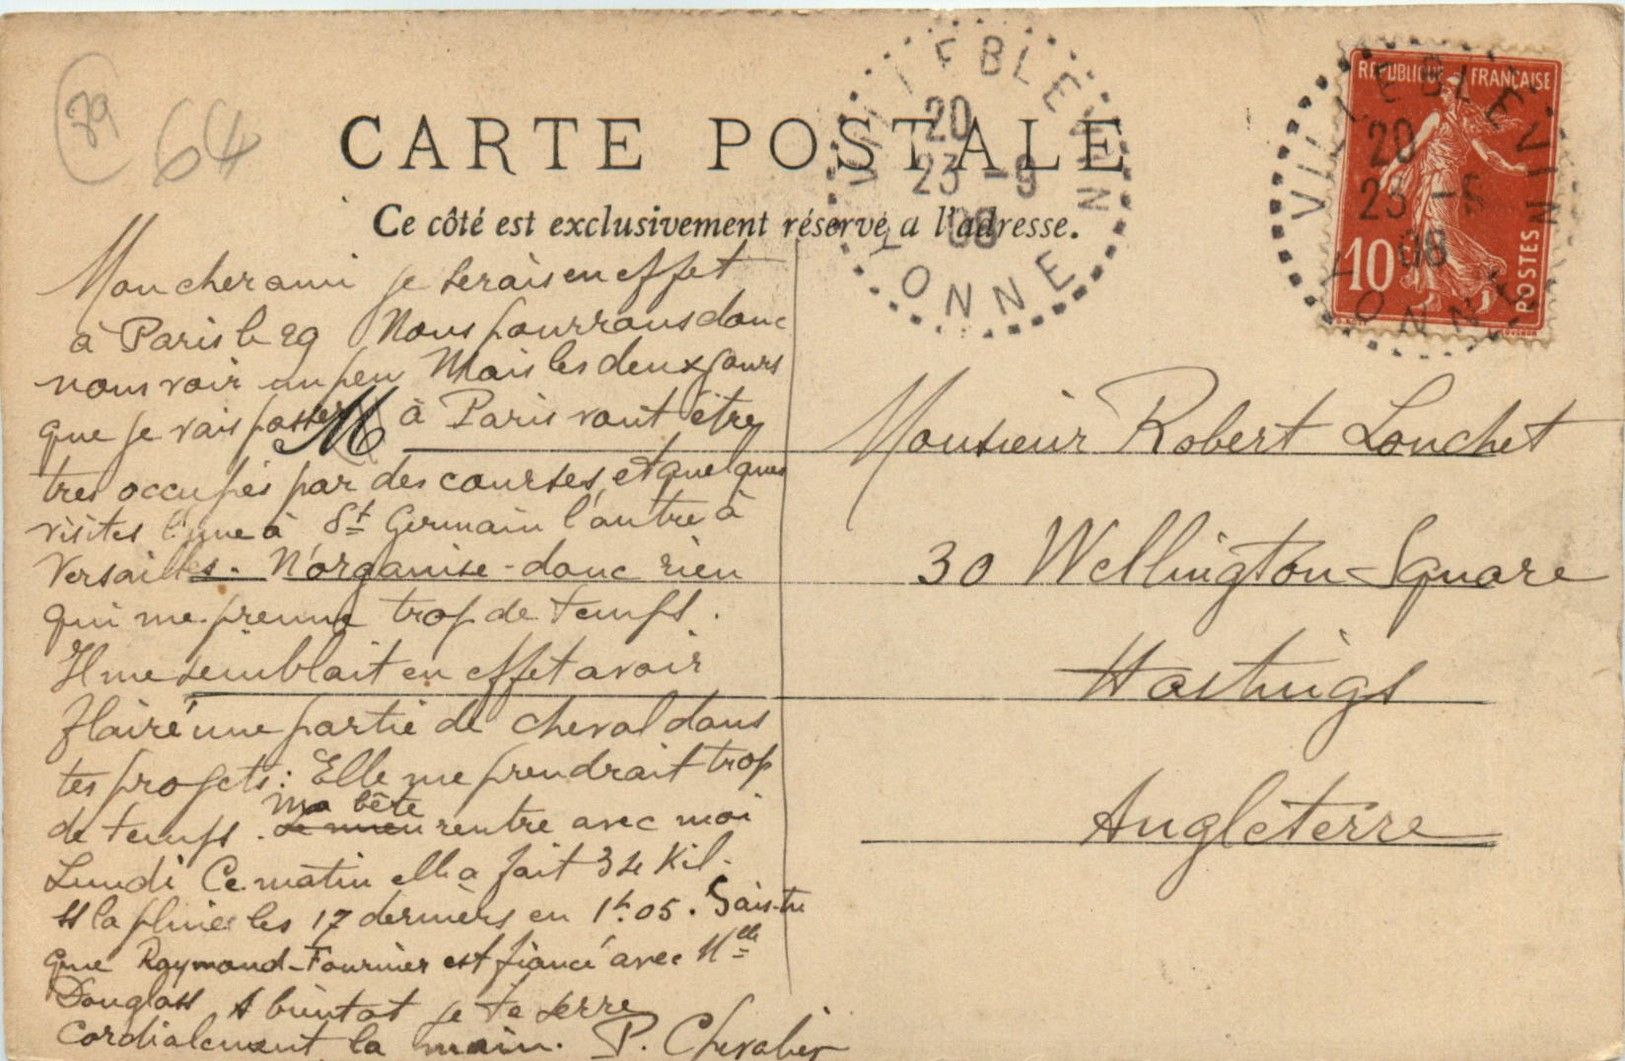 79
64
CARTE POSTALE
Ce côté est exclusivement réservé a l'adresse.
VILLEBLEVIN
20
23 -9
08
YONNE
REPUBLIQUE FRANÇAISE
10
POSTES
VILLEBLEVIN
20
23 -9
08
YONNE
Mon cher ami je serais en effet
à Paris le 29 Nous pourrons donc
nous voir un peu Mais les deux jours
que je vais passer à Paris vont être
très occupés par des courses, et quelques
visites l'une à St Germain l'autre à
Versailles. N'organise donc rien
qui me prenne trop de temps.
Il me semblait en effet avoir
flairé une partie de cheval dans
tes projets : Elle me prendrait trop
ma bête
de temps. Le mien rentre avec moi
Lundi Ce matin elle a fait 34 Kil.
ss la pluie les 17 derniers en 1h.05. Sais-tu
que Raymond-Fournier est fiancé avec Mlle
Douglass A bientot je te serre
cordialement la main. P. Chevalier
M
Monsieur Robert Louchet
30 Wellington-Square
Hastings
Angleterre